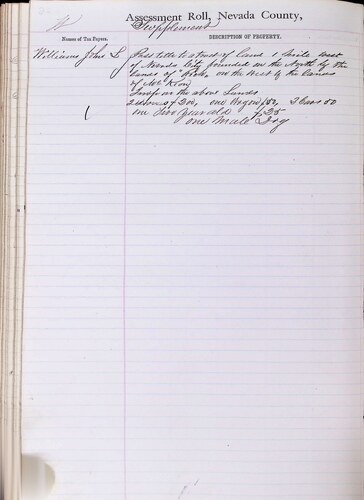 W
Assessment Roll, Nevada County,
Supplement
Names of Tax Payers.
DESCRIPTION OF PROPERTY.
Williams John S Poss title to a tract of Land 1 mile west
of Nevada City bounded on the North by the
Lands of on the West by the Lands
of
Imps on the above Lands
2 200, one Wagon 50, 2 Cows 50
one Two year old $25
one male Dog
1